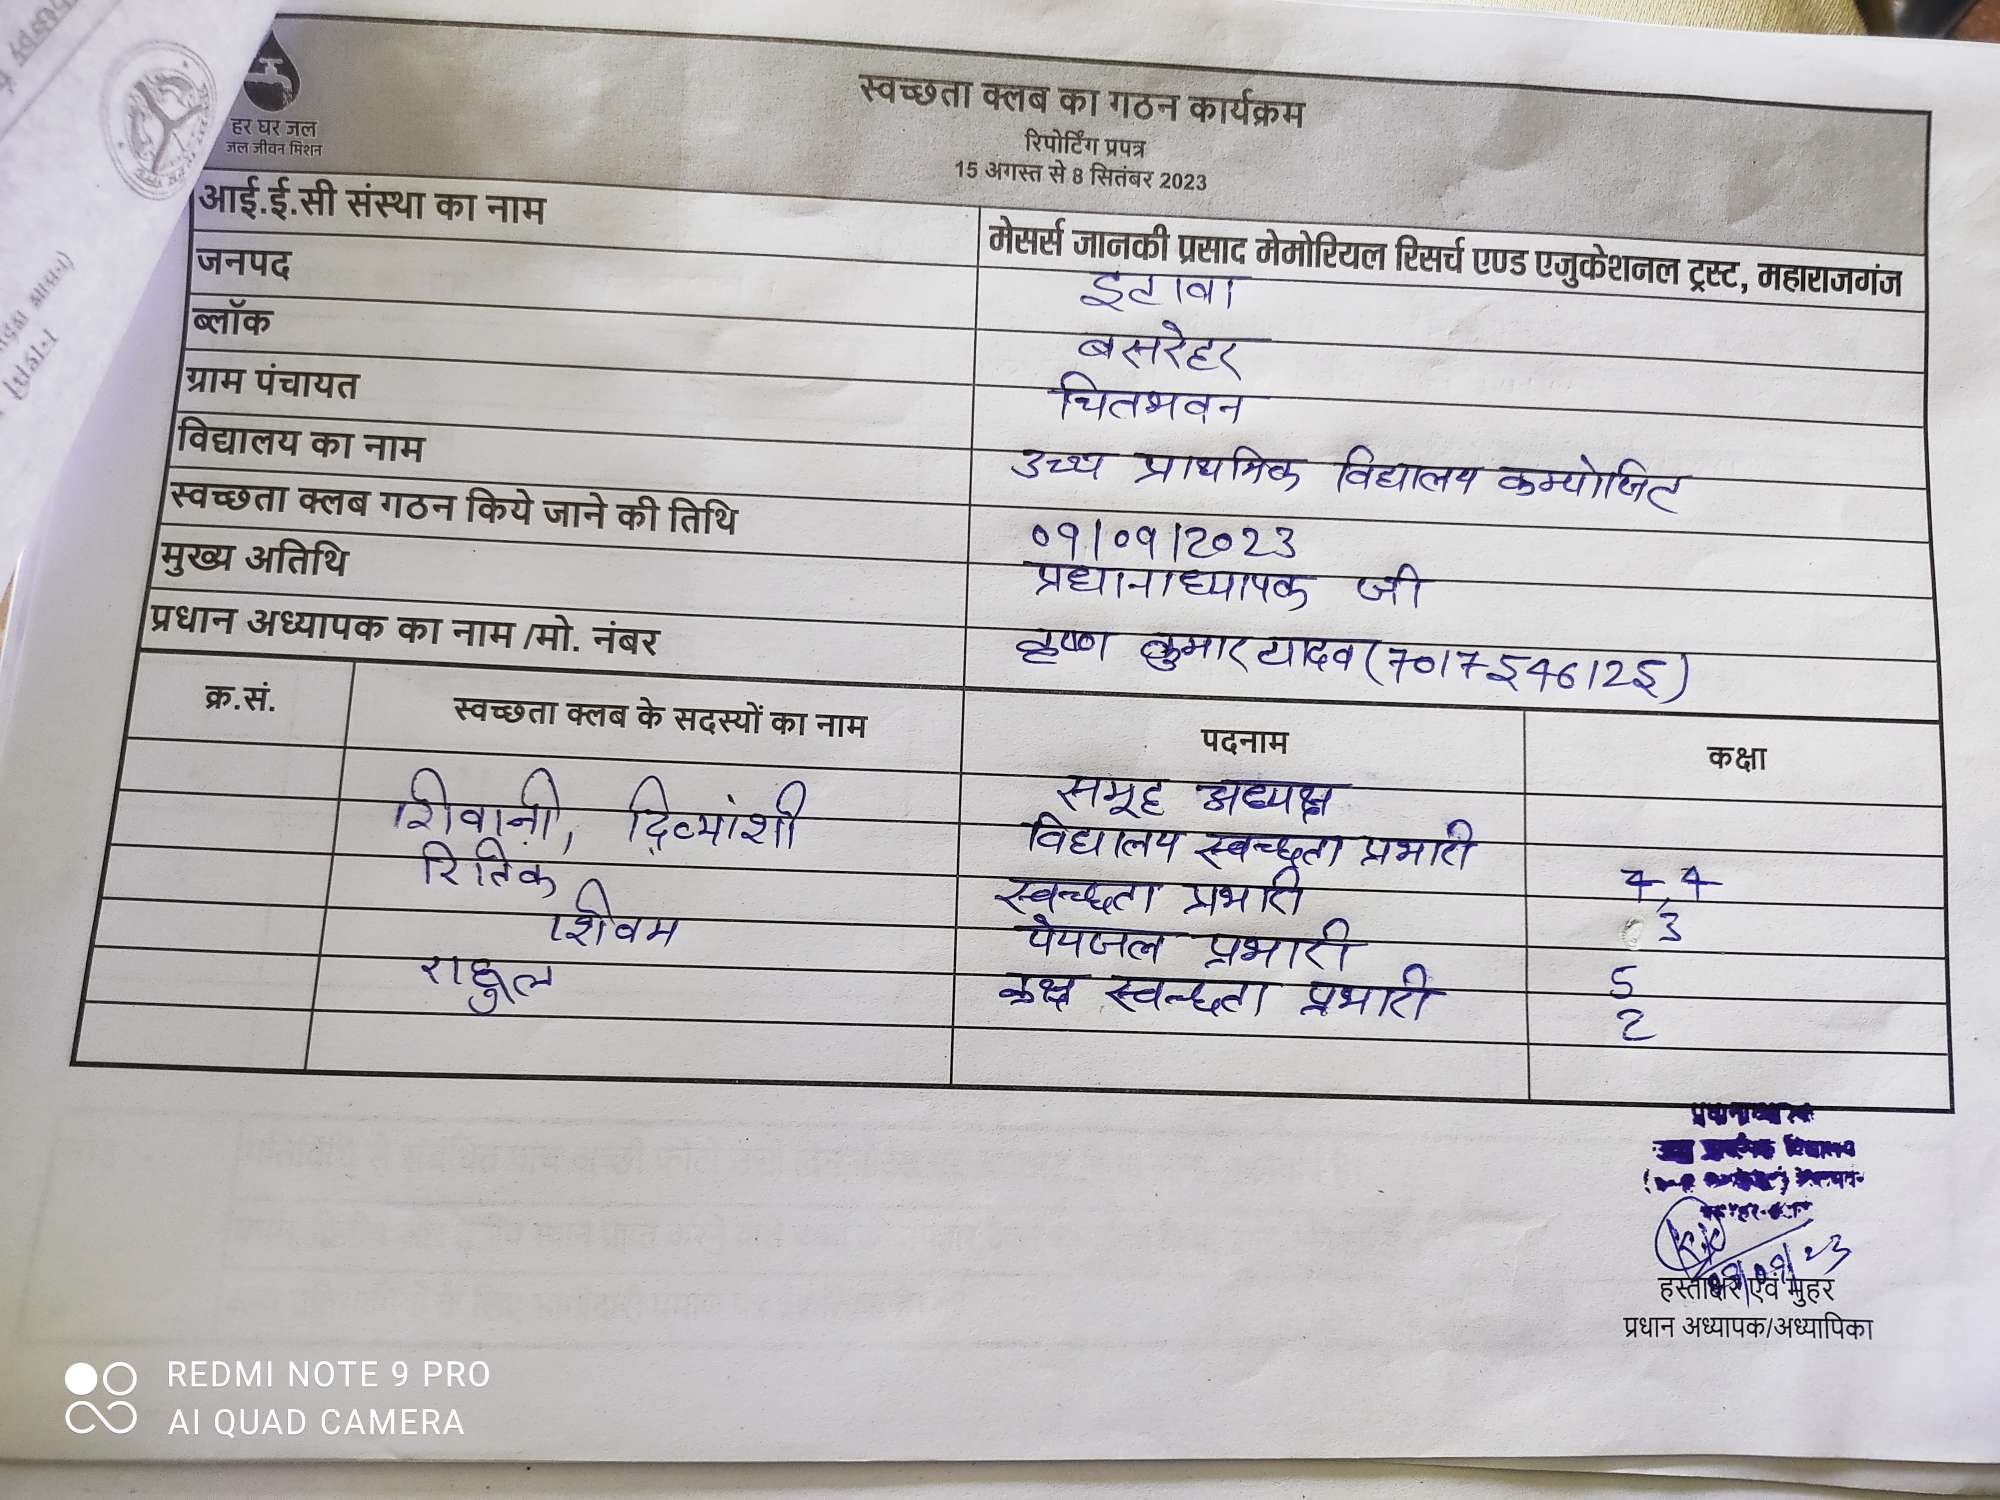 हर घर जल
जल जीवन मिशन
स्वच्छता क्लब का गठन कार्यक्रम
रिपोर्टिंग प्रपत्र
15 अगस्त से 8 सितंबर 2023
आई.ई.सी संस्था का नाम मेसर्स जानकी प्रसाद मेमोरियल रिसर्च एण्ड एजुकेशनल ट्रस्ट, महाराजगंज
जनपद इटावा
ब्लॉक बसरेहर
ग्राम पंचायत चितभवन
विद्यालय का नाम उच्च प्राथमिक विद्यालय कम्पोजिट
स्वच्छता क्लब गठन किये जाने की तिथि 09/09/2023
मुख्य अतिथि प्रधानाध्यापक जी
प्रधान अध्यापक का नाम /मो. नंबर कृष्ण कुमार यादव (7017546125)
क्र.सं. स्वच्छता क्लब के सदस्यों का नाम पदनाम कक्षा
समूह अध्यक्ष
शिवानी, दिव्यांशी विद्यालय स्वच्छता प्रभारी 4, 4
रितिक स्वच्छता प्रभारी 3
शिवम पेयजल प्रभारी 5
राहुल कक्ष स्वच्छता प्रभारी 2
प्रधानाध्यापक
09/09/23
हस्ताक्षर एवं मुहर
प्रधान अध्यापक/अध्यापिका
REDMI NOTE 9 PRO
AI QUAD CAMERA